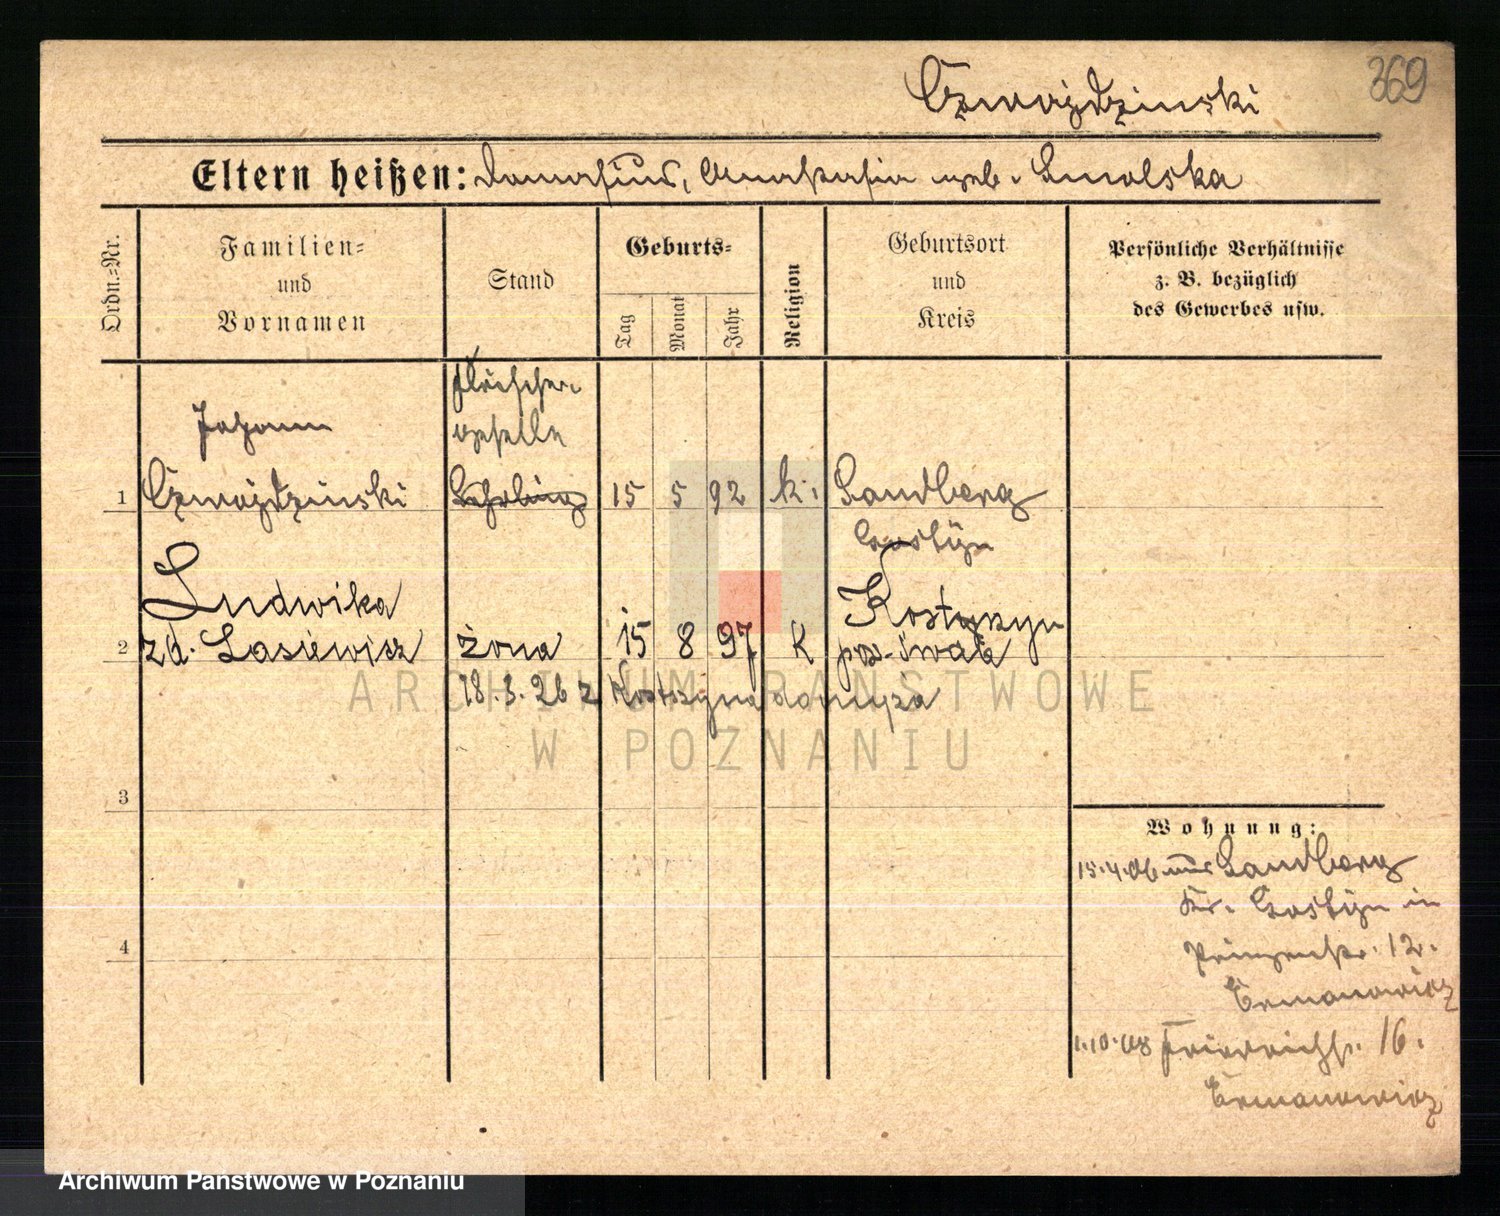 369
Czwojdzinski
Eltern heißen: Damasius, Anastasia geb. Smolska
Ordn.=Nr.
Familien= und Vornamen
Stand
Geburts=
Tag
Monat
Jahr
Religion
Geburtsort und Kreis
Persönliche Verhältnisse z. B. bezüglich des Gewerbes usw.
Fleischer-
geselle
Johann
1 Czwojdzinski Lehrling 15 5 92 k. Sandberg
Gostyn
Ludwika Kostrzyn
2 zd. Lasiewicz żona 15 8 97 K
18.3.26 z Kostrzyna
3
Wohnung:
15.4.06 aus Sandberg
Kr. Gostyn in
Prinzenstr. 12.
4
Ermanowicz
1.10.08 Friedrichstr. 16.
Ermanowicz
ARCHIWUM PAŃSTWOWE
W POZNANIU
Archiwum Państwowe w Poznaniu